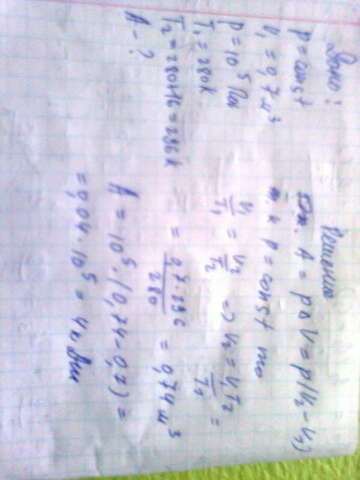 Дано:
p = const
V₁ = 0,7 м³
p = 10⁵ Па
T₁ = 280 К
T₂ = 280 + 16 = 296 К
A - ?
Решение
A = pΔV = p(V₂ - V₁)
т.к p = const то
V₁/T₁ = V₂/T₂ => V₂ = V₁T₂/T₁ =
= 0,7·296/280 = 0,74 м³
A = 10⁵·(0,74 - 0,7) =
= 0,04·10⁵ = 4 кДж